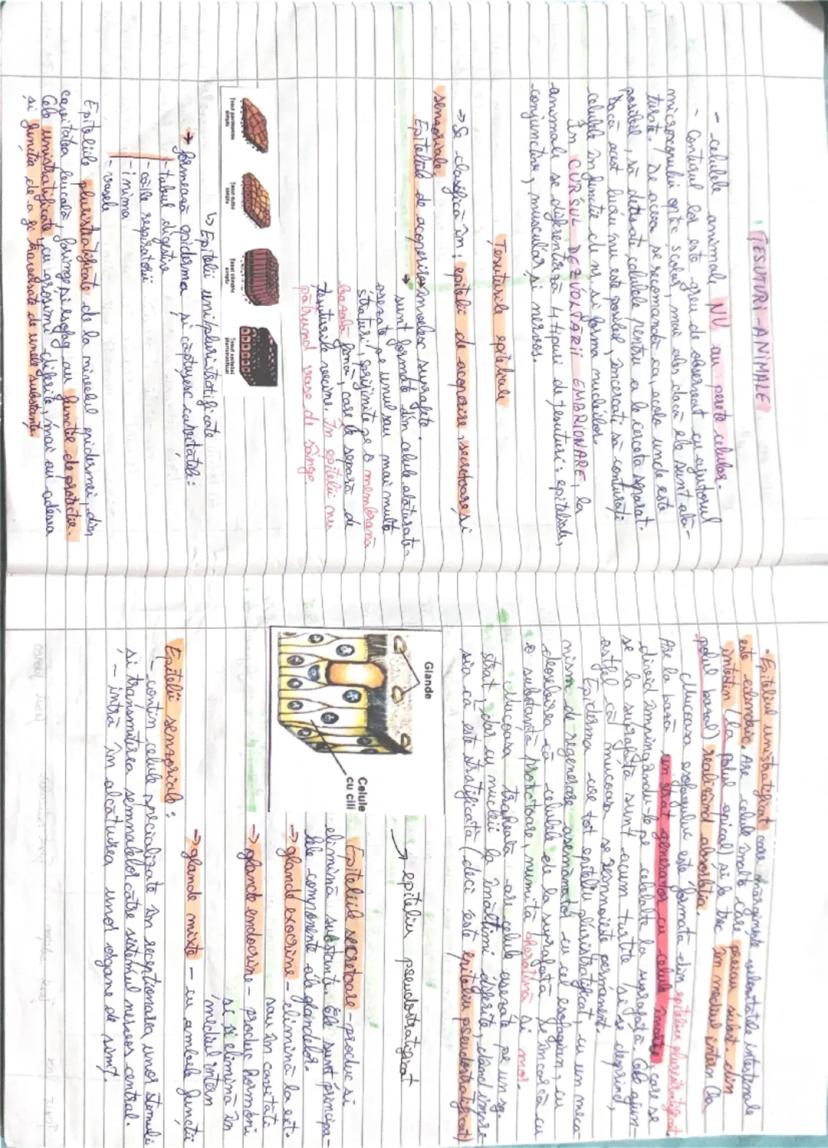 ȚESUTURI ANIMALE
- celulele animale NU au perete celular.
- Conturul lor este greu de observat cu ajutorul
microscopului optic școlar, mai ales dacă ele sunt ală-
turate. De aceea se recomandă ca, acolo unde este
posibil, să detașați celulele pentru a le cerceta separat.
Dacă acest lucru nu este posibil, încercați să conturați
celulele în funcție de nr. și forma nucleilor.
În CURSUL DEZVOLTĂRII EMBRIONARE la
animale se diferențiază 4 tipuri de țesuturi: epiteliale,
conjunctive, musculare și nervos.
Țesuturile epiteliale
→ Se clasifică în: epitelii de acoperire, secretoare și
senzoriale
Epiteliile de acoperire învelesc suprafețe.
→ sunt formate din celule alăturate
așezate pe unul sau mai multe
straturi, sprijinite pe o membrană
bazală fină, care le separă de
țesuturile vecine. În epitelii nu
pătrund vase de sânge
Țesut pavimentos simplu
Țesut cubic simplu
Țesut cilindric simplu
Țesut epitelial pluristratificat
↳ Epitelii uni/pluristratificate
→ formează epiderma și căptușesc cavitățile:
- tubul digestiv
- căile respiratorii
- inima
- vasele
Epiteliile pluristratificate de la nivelul epidermei, din
cavitatea bucală, faringe și esofag au funcție de protecție.
Cele unistratificate cu grosimi diferite, mai au adesea
și funcția de a fi traversate de unele substanțe
- Epiteliul unistratificat care mărginește vilozitatea intestinală
este cilindric. Are celule înalte care preiau subst. din
intestin (la polul apical) și le trec în mediul intern (la
polul bazal) realizând absorbția.
Mucoasa esofagului este formată din epiteliu pluristratificat.
Are la bază un strat generator cu celule tinere, care se
divid împingându-le pe celelalte la suprafață. Cele ajun-
se la suprafață sunt acum turtite și se desprind,
astfel că mucoasa se reînnoiește permanent.
Epiderma este tot epiteliu pluristratificat, cu un meca-
nism de regenerare asemănător cu cel esofagian, cu
deosebirea că celulele de la suprafață se încarcă cu
o substanță protectoare, numită cheratină și mor.
Mucoasa traheală are celule așezate pe un sg.
strat, dar cu nucleii la înălțimi diferite, dând impre-
sia că este stratificată (deci este epiteliu pseudostratificat)
Glande
Celule
cu cili
→ epiteliu pseudostratificat
Epiteliile secretoare produc și
elimină substanțe. Ele sunt principa-
lele componente ale glandelor.
→ glande exocrine - elimină la ext.
sau în cavități
→ glande endocrine - produc hormoni
și îi elimină în
mediul intern
→ glande mixte - cu ambele funcții
Epitelii senzoriale:
- conțin celule specializate în recepționarea unor stimuli
și transmiterea semnalelor către sistemul nervos central.
- intră în alcătuirea unor organe de simț.